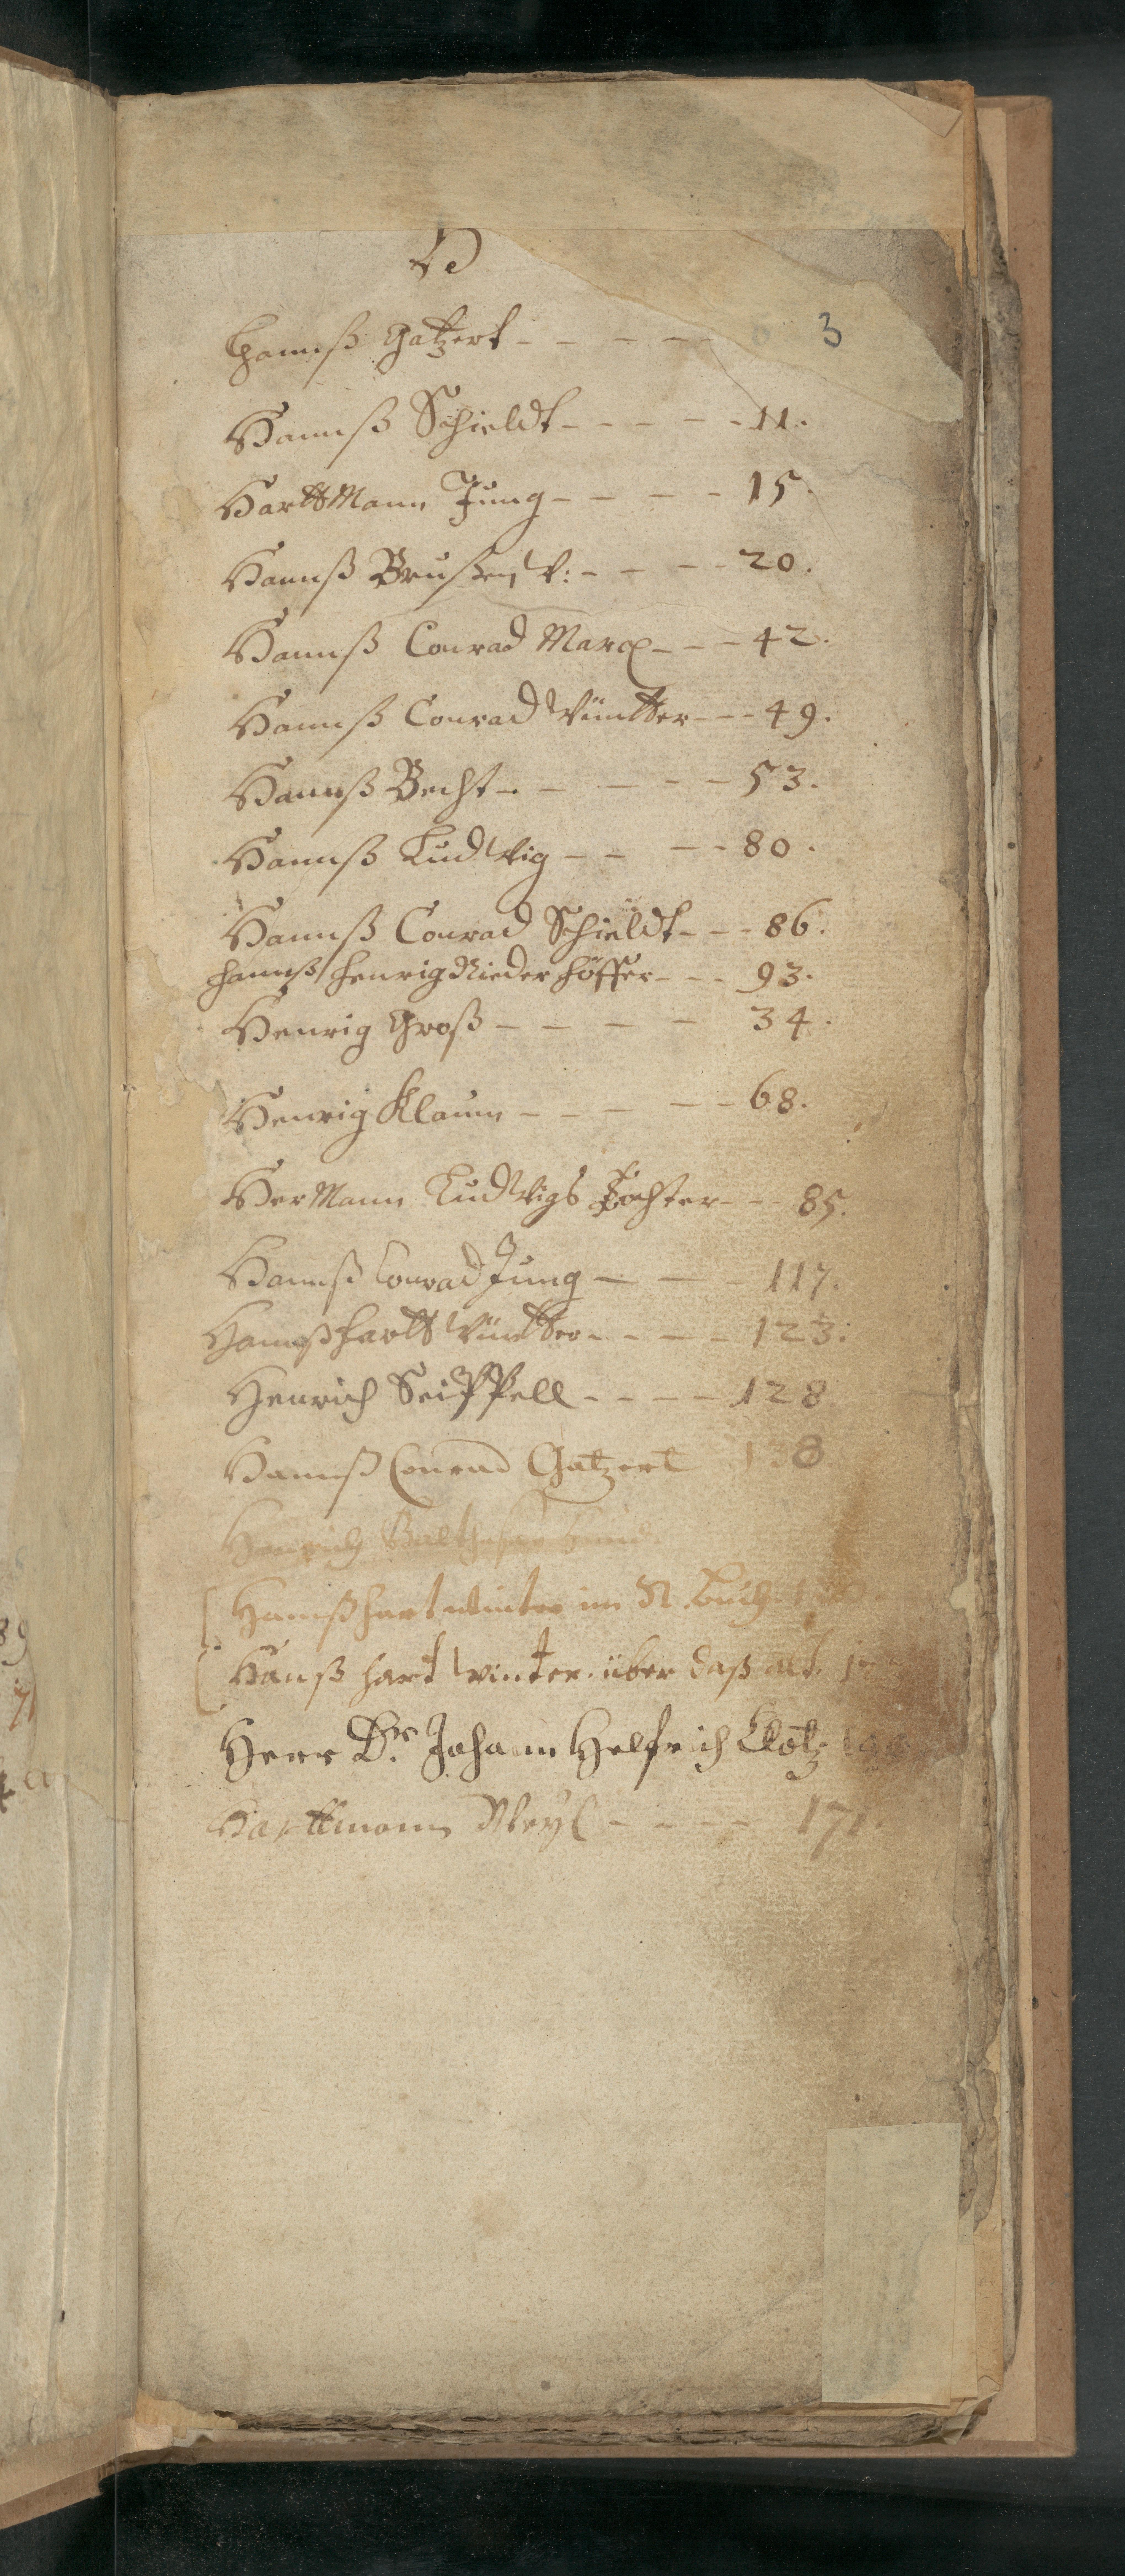 H
Hannß Gatzert - - - - - 3
Hannß Schieldt - - - - - 11.
HarttMann Jung - - - - 15.
Hannß Brußen V: - - - - 20.
Hannß Conrad Marx - - - 42.
Hannß Conrad Wintter - - - 49.
Hannß Becht - - - - - 53.
Hannß Ludwig - - - - 80.
Hannß Conrad Schieldt - - - 86.
Hannß Henrig Niederhöffer - - - 93.
Henrig Groß - - - - 34.
Henrig Klaum - - - - - 68.
HerMann Ludwigs Tochter - - - 85.
Hannß Conrad Jung - - - 117.
Hannß Hartt Wintter - - - - 123.
Henrich Seippell - - - - 128.
Hannß Conrad Gatzert 138
Henrich Balthasar
Hannß Hart Winter im N. Buch
Hanß Hart Winter über daß alt.
Herr Dr. Johann Helfrich Klotz
Harttmann Weyl - - - - 171.
89